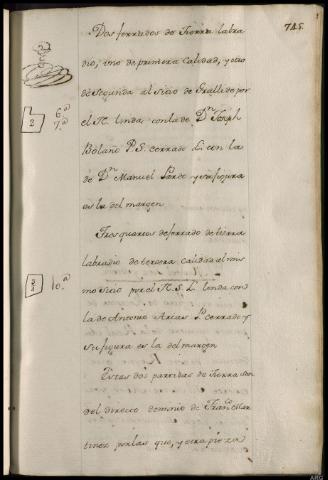 745.
Dos ferrados de tierra labra
dio, uno de primera calidad, y otro
de segunda al sitio de Gralle de por
2 6.ª 7.ª
el N. linda con la de Dⁿ Josef
Bolaño P. S. cerrado L. con la
de Dⁿ Manuel Pardo y su figura
es la del margen
Tres quartos de ferrado de tierra
labradio de tercera calidad al mis
10.ª
mo sitio por el N. S. L. linda con
la de Antonio Arias P. cerrado y
su figura es la del margen
Estas dos partidas de tierra son
del directo dominio de Franco Mar
tinez por las que, y otra pieza
ARG